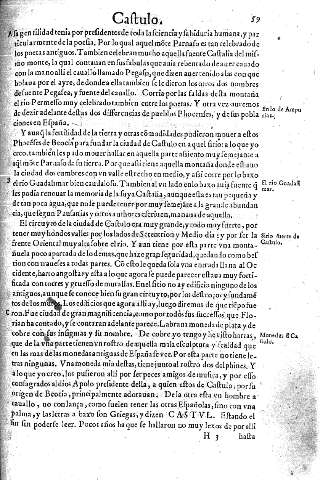 Castulo. 59
sa gentilidad tenia por presidentes de toda la sciencia y sabiduria humana, y par
ticularmente de la poesia. Por lo qual aquel môte Parnaso es tan celebrado de
los poetas antiguos. Tambien celebran mucho aquella fuente Castalia del mis-
mo monte, la qual contauan en sus fabulas que auia rebentado de auer cauado
con la mano alli el cauallo llamado Pegaso, que dizen auer tenido alas con que
bolaua por el ayre, de donde a ella tambien se le dieron los otros dos nombres
de fuente Pegasea, y fuente del cauallo. Corria por las faldas desta montaña
el rio Permesso muy celebrado tambien entre los poetas. Y otra vez ouremos
de dezir adelante destas dos differencias de pueblos Phocenses, y de sus pobla
ciones en España.
Y aunq̃ la fertilidad de la tierra y otras cõmodidades pudieron mouer a estos
Phocenses de Beocia para fundar la ciudad de Castulo en aquel sitio: a lo que yo
creo, tambien les pudo mouer hallar en aquella parte assiento muy semejante a
aq̃l môte Parnaso de su tierra. Por que assi tiene aquella montaña donde estauo
la ciudad dos cumbres con vn valle estrecho en medio, y assi corre por lo baxo
el rio Guadalimar bien caudaloso. Tambien al vn lado en lo baxo ay vna fuente q̃
les podia renouar la memoria de la suya Castalia, aunque esta es tan pequeña y
de tan poca agua, que no le puede tener por muy semejante a la grande abundan
cia, que segun Pausanias y otros authores escriuen, manaua de aquella.
El circuyto de la ciudad de Castulo era muy grande, y todo muy fuerte, por
tener muy hondos valles por los lados de Setentrion y Medio dia: y por ser la
frente Oriental muy alta sobre el rio. Y aun tiene por esta parte vna monta-
ñuela poco apartada de lo demas, que haze gran seguridad, quedando como bes-
tion con traueses a todas partes. Cõ esto le queda sola vna entrada llana al Oc
cidente, harto angosta y esta a lo que agora se puede parecer estaua muy forti-
ficada con torres y gruesso de murallas. En el sitio no ay edificio ninguno de los
antiguos, aunque se conoce bien su gran circuyto, por los destroços y fundamẽ
tos de los muros y de los edificios que agora ay alli, y luego diremos de que tiẽpo fue
ron. Fue ciudad de gran magnificencia, como por todos sus successos que Flo-
rian ha contado, y se contaran adelante parece. Labraua moneda de plata y de
cobre con sus insignias y su nombre. De cobre yo tengo y he visto hartas,
que de la vna parte tienen vn rostro de aquella mala sculptura y fealdad que
en las mas de las monedas antiguas de España se vee. Por esta parte no tiene le-
tras ningunas. Vna moneda mia destas, tiene junto al rostro dos delphines. Y
a lo que yo creo, los pusieron alli por ser peces amigos de musica, y por esso
consagrados al dios Apolo presidente della, a quien estos de Castulo, por su
origen de Beocia, principalmente adorauan. De la otra esta vn hombre a
cauallo, no con lança, como suelen tener las otras Españolas, sino con vna
palma, y las letras a baxo son Griegas, y dizen CASTVL. Estando el
fin sin poderse leer. Pocos años ha que se hallaron no muy lexos de por alli
H 3 hasta
El rio Guadali
mar.
Sitio fuerte de
Castulo.
Monedas d̃ Ca
stulo.